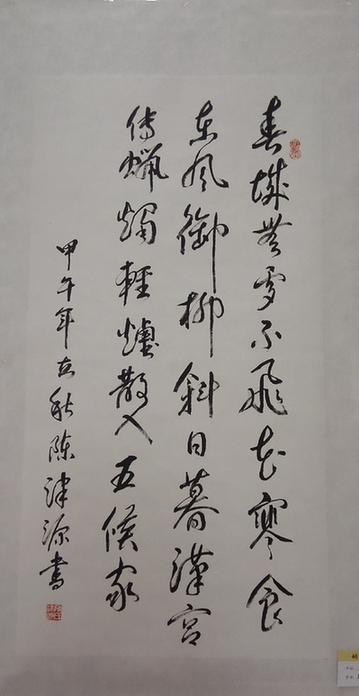 春城無處不飛花寒食
東風御柳斜日暮漢宮
傳蠟燭輕煙散入五侯家
甲午年立秋陳津源書